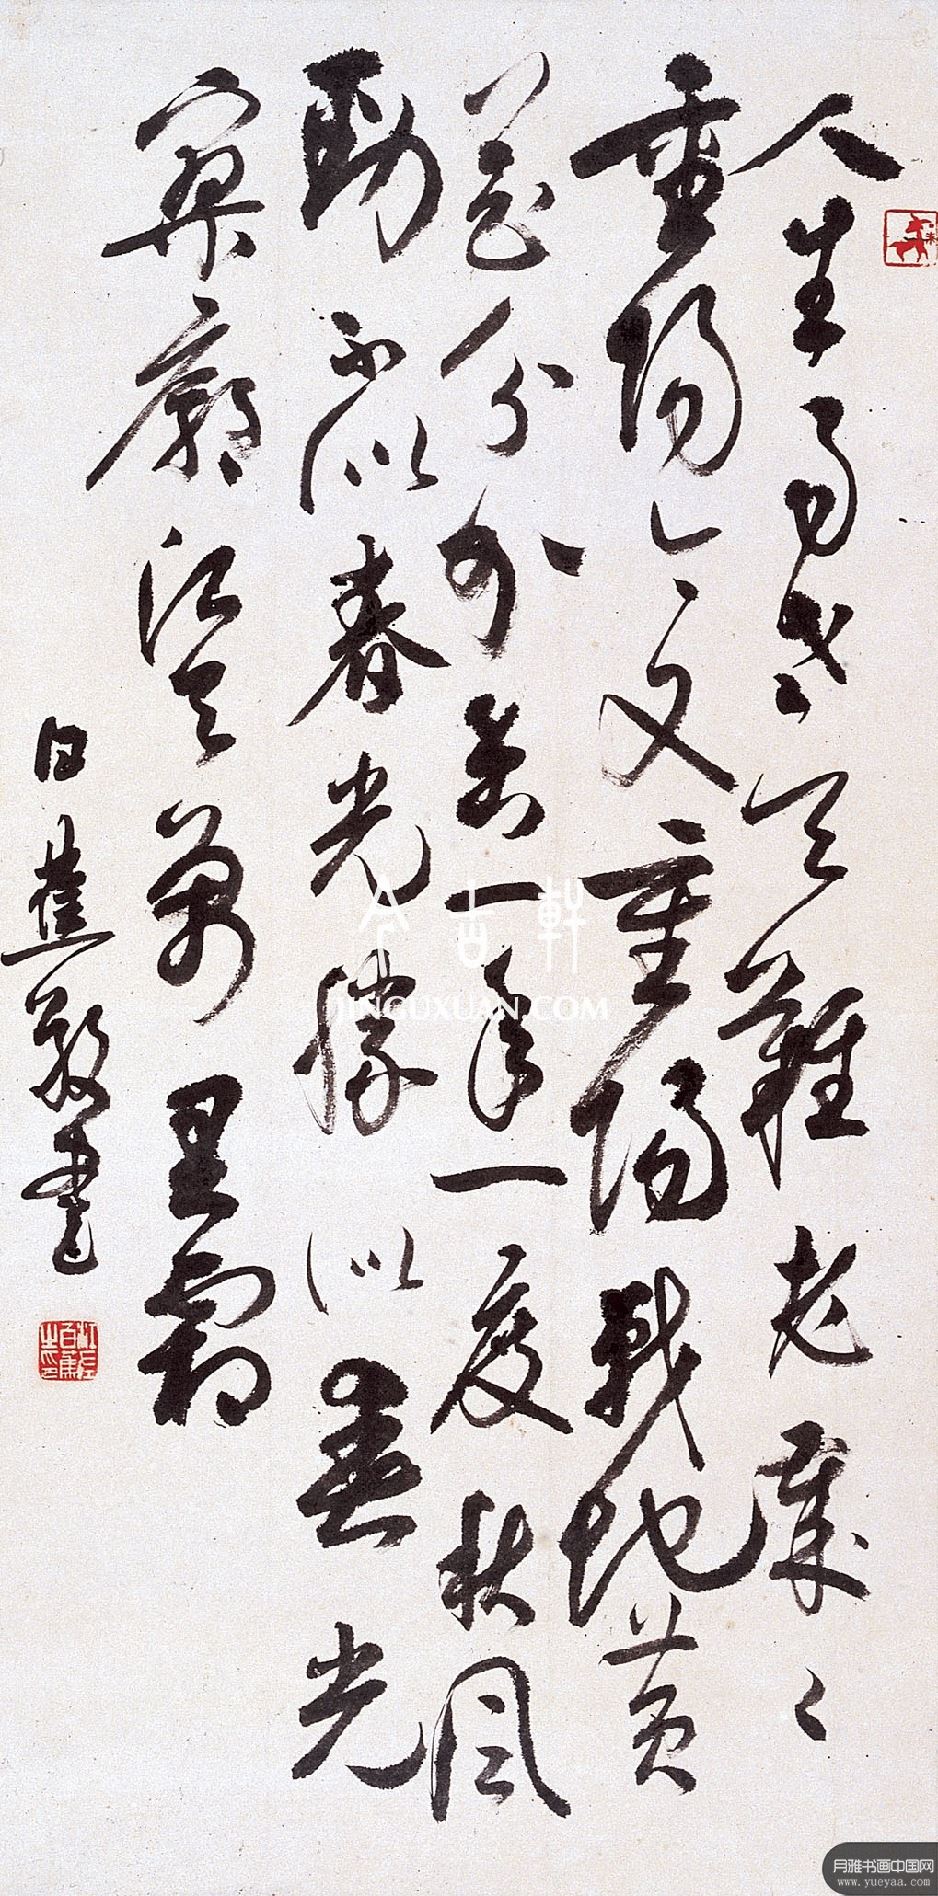 人生易老天難老歲〻
重陽今又重陽戰地黃
花分外香一年一度秋風
勁不似春光勝似春光
寥廓江天萬里霜
白蕉敬書
今古軒
JINGUXUAN.COM
月雅书画中国网
www.yueyaa.com